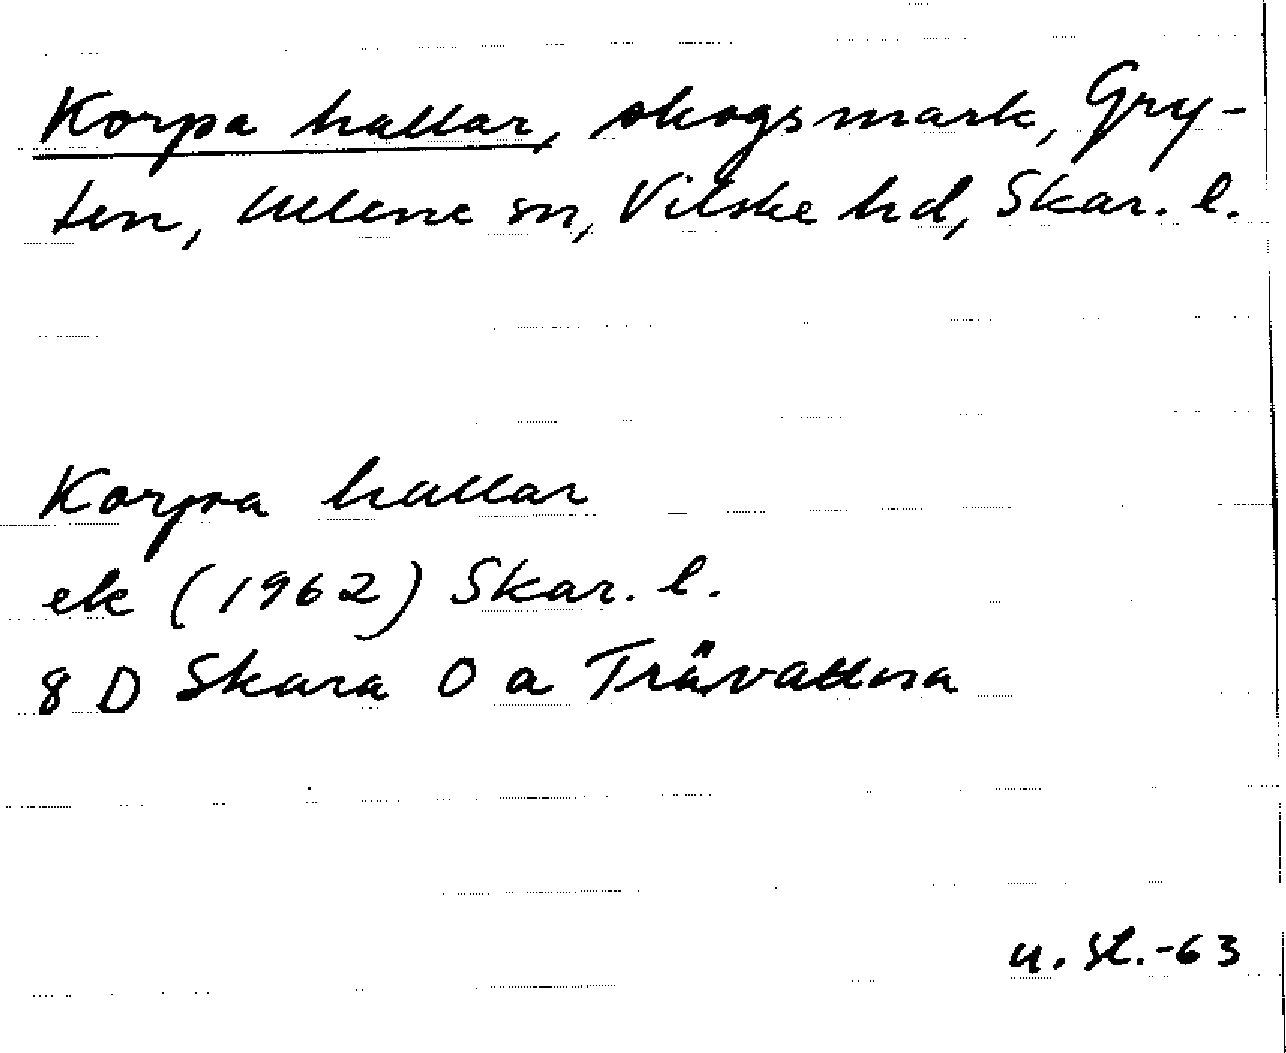 Korpa hallar, skogsmark, Gry-
ten, Ullene sn, Vilske hd, Skar. l.
Korpa hallar
ek (1962) Skar. l.
8 D Skara 0 a Trävattna
u. St. -63